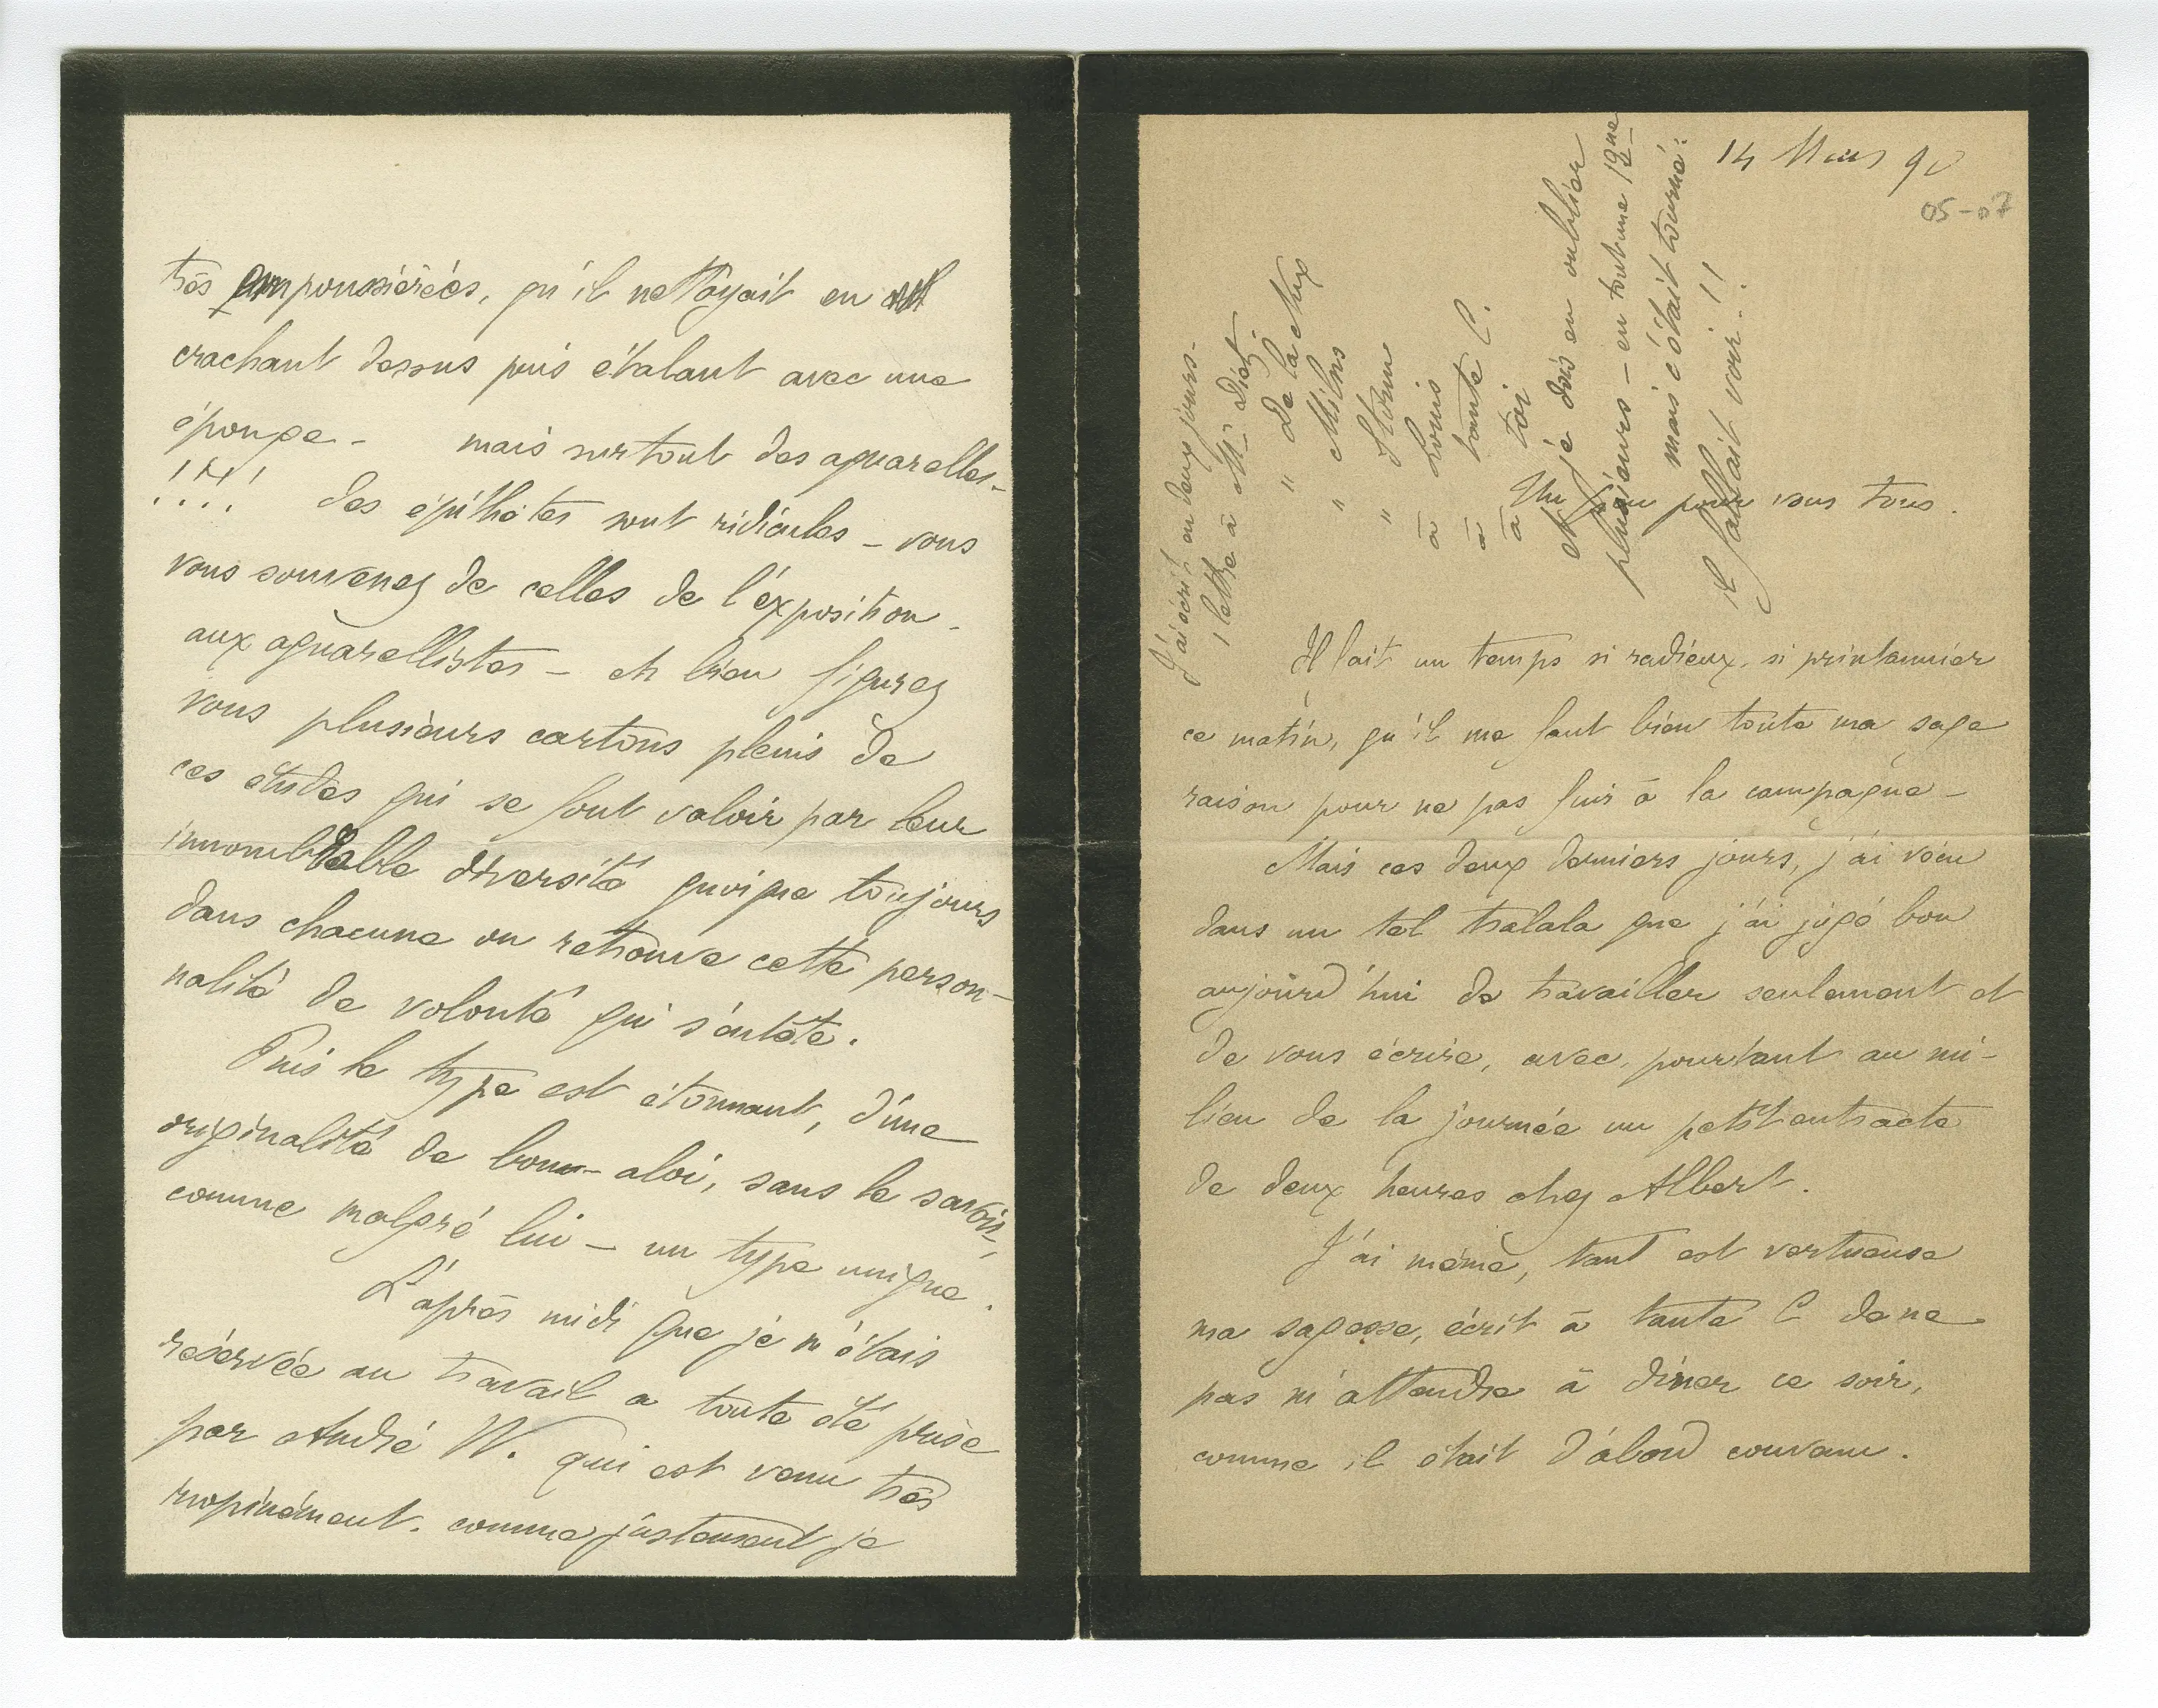 14 Mars 90
05-07
J'ai écrit en deux jours -
1 lettre à Mr Diétz
" De la Nux
" Milns
" Storm
à Louis
à tante C.
à toi
et je dois en oublier
plusieurs - en tout une 12ne
mais c'était tourné:
il fallait voir!!
Un peu pour vous tous.
Il fait un temps si radieux, si printannier
ce matin, qu'il me faut bien toute ma sage
raison pour ne pas fuir à la campagne -
Mais ces deux derniers jours, j'ai vécu
dans un tel tralala que j'ai jugé bon
aujourd'hui de travailler seulement et
de vous écrire, avec, pourtant au mi-
lieu de la journée un petit entracte
de deux heures chez Albert.
J'ai même, tant est vertueuse
ma sagesse, écrit à tante C de ne
pas m'attendre à dîner ce soir,
comme il était d'abord convenu.
très empoussiérées, qu'il nettoyait en
crachant dessus puis étalant avec une
éponge - mais surtout des aquarelles -
!!!! des épithètes sont ridicules - vous
vous souvenez de celles de l'exposition
aux aquarellistes - eh bien figurez
vous plusieurs cartons pleins de
ces études qui se font valoir par leur
innombrable diversité quoique toujours
dans chacune on retrouve cette person-
nalité de volonté qui s'entête.
Puis le type est étonnant, d'une
originalité de bon aloi, sans le savoir,
comme malgré lui - un type unique.
L'après midi que je m'étais
réservée au travail a toute été prise
par André W. qui est venu très
inopinément. comme justement je